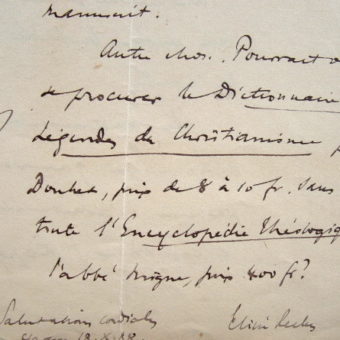 manuscrit.
Autre chose. Pourrait o
se procurer le Dictionnaire
Légendes du Christianisme p
Douhet, prix de 8 à 10 fr. Sans
toute l'Encyclopédie théologiq
l'abbé Migne, prix 400 fr?
Salutations cordiales Elisée Reclus